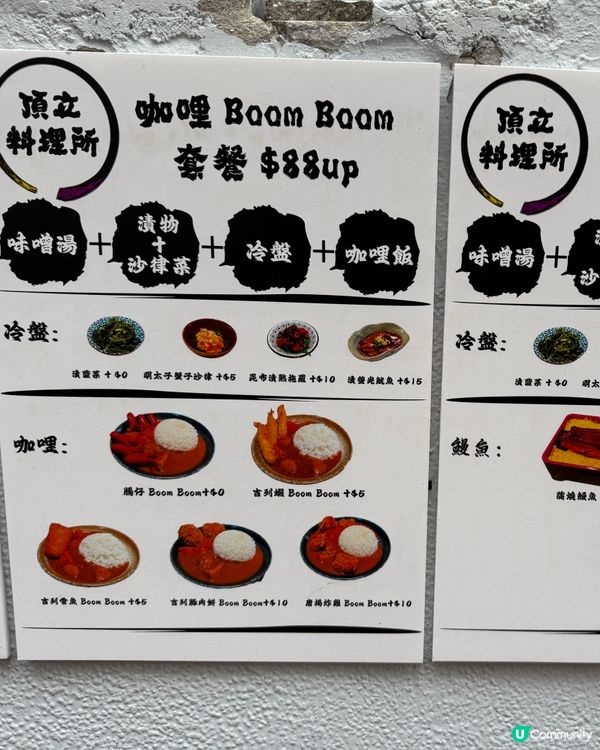 頂立
料理所
咖哩 Boom Boom
套餐 $88up
味噌湯+漬物+沙律菜+冷盤+咖哩飯
冷盤:
漬韲菜 +$0 明太子蟹子沙律 +$5 昆布漬熟拖羅 +$10 漬螢光魷魚 +$15
咖哩:
腸仔 Boom Boom+$0 吉列蝦 Boom Boom +$5
吉列雪魚 Boom Boom +$5 吉列豚肉餅 Boom Boom+$10 唐揚炸雞 Boom Boom+$10
頂立
料理所
味噌湯+
冷盤:
+$0
鰻魚:
蒲燒鰻魚
U Community